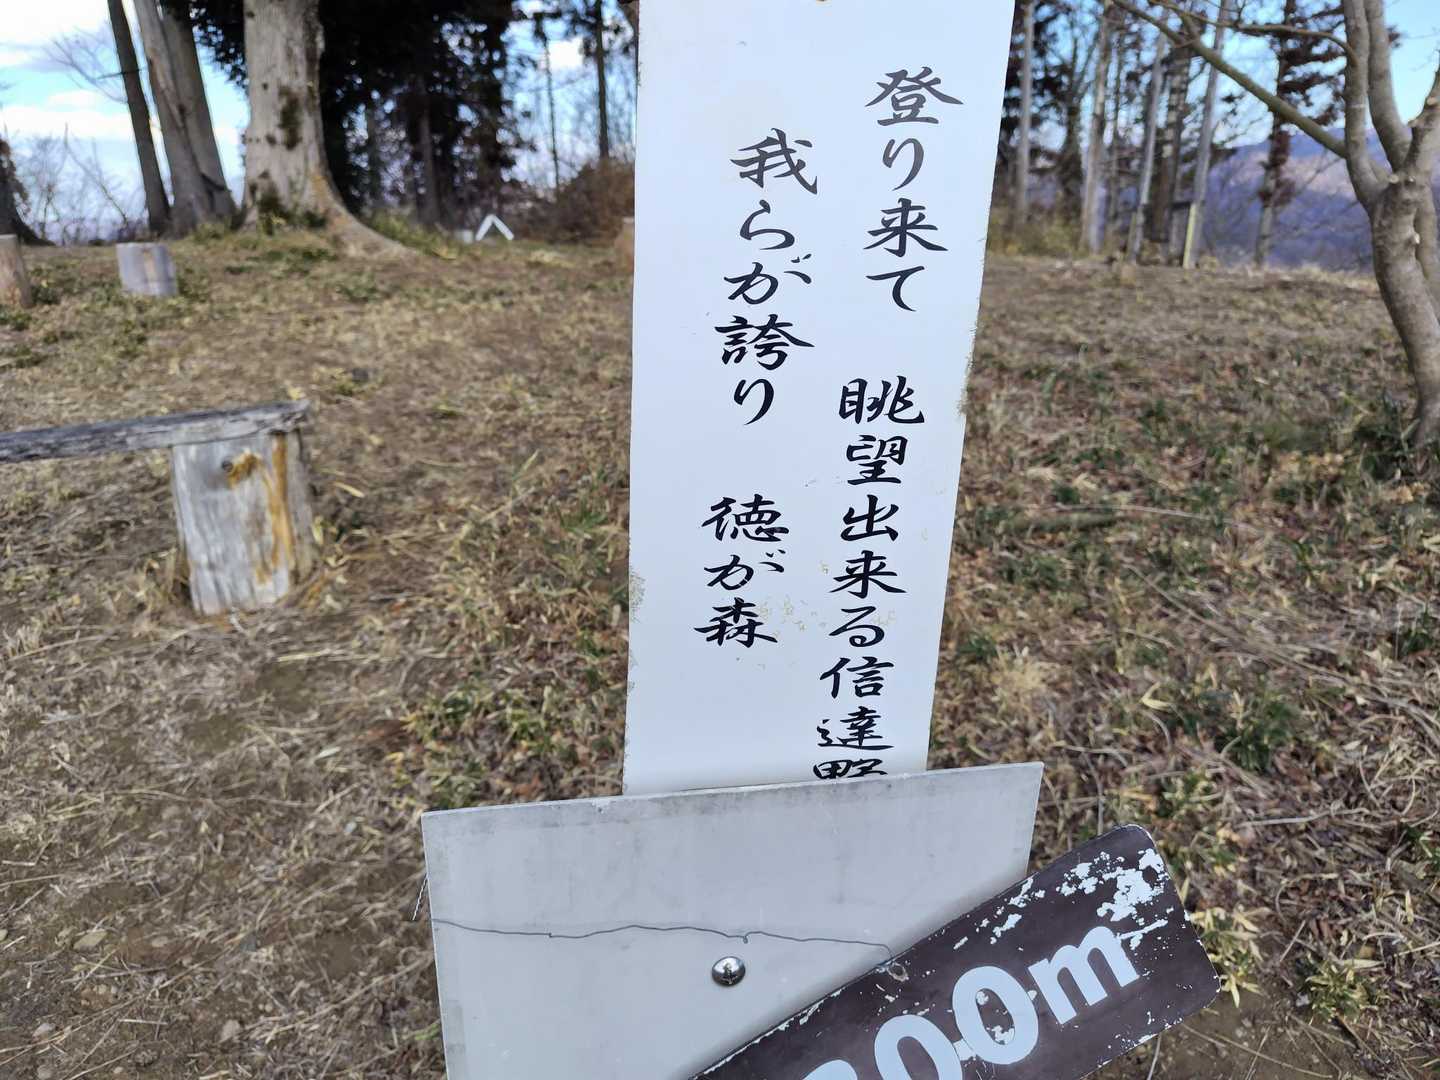 登り来て 眺望出来る信達野
我らが誇り 徳が森
00m